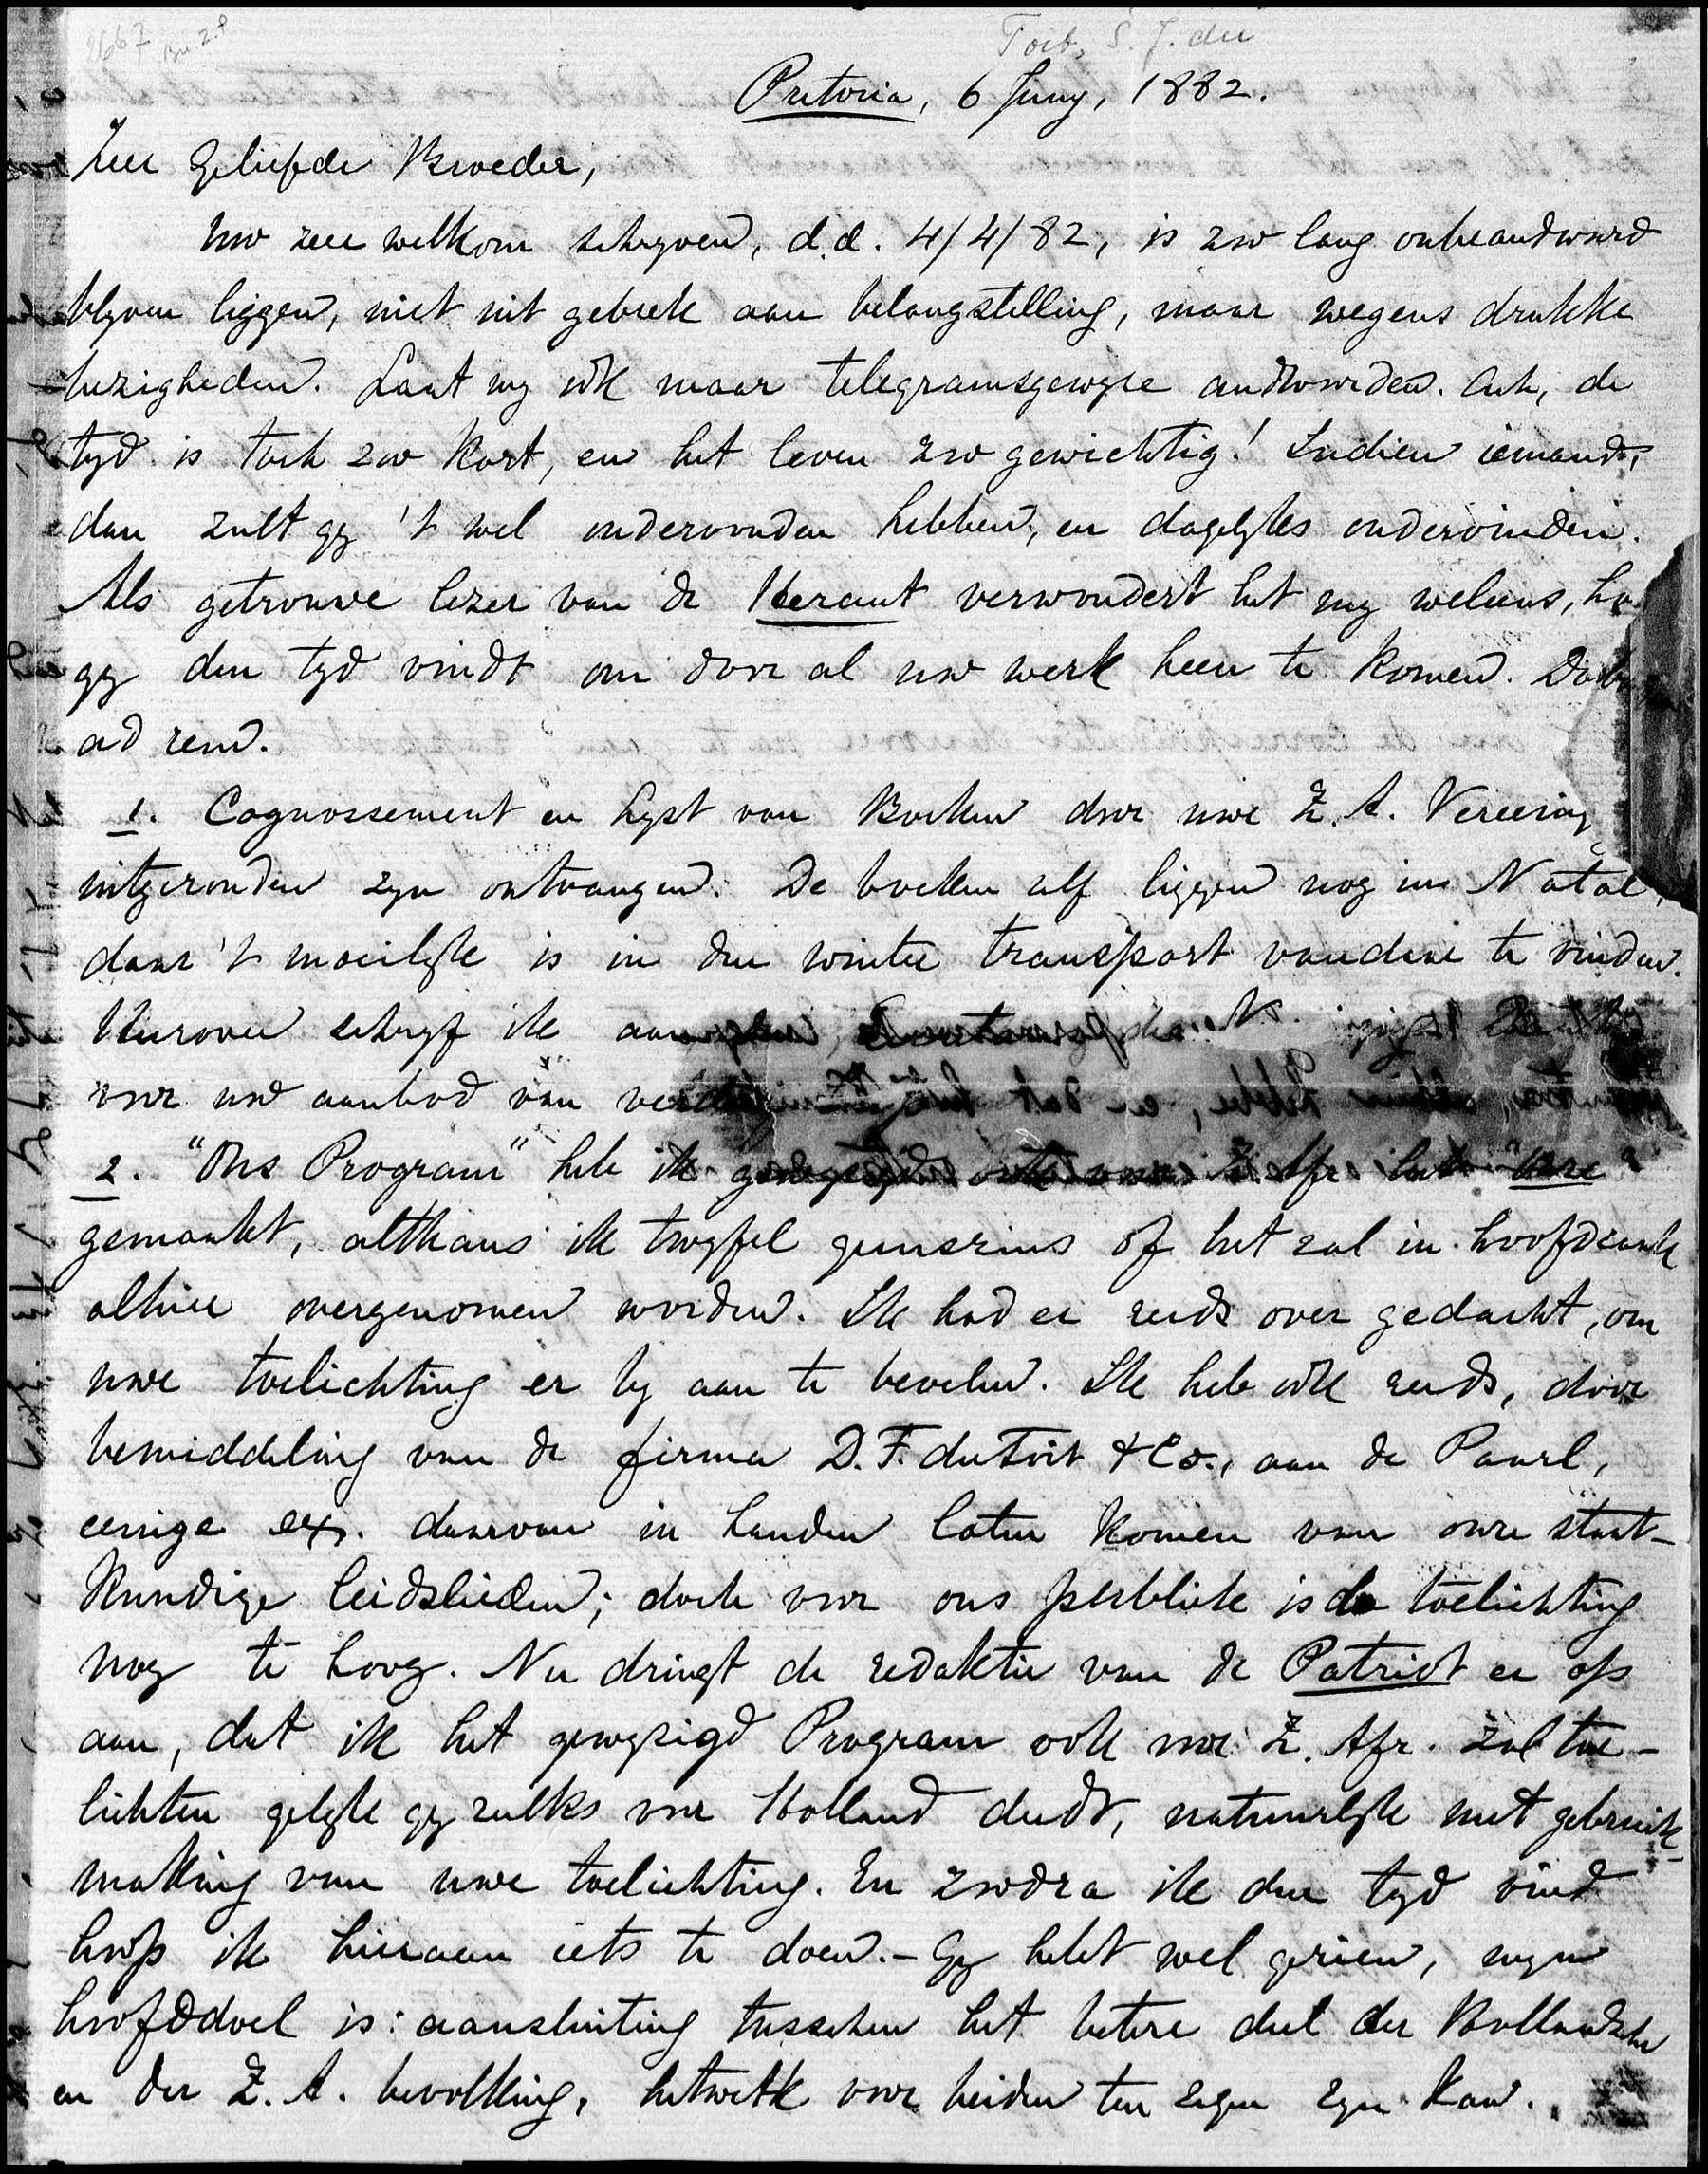 2667
Toit, S. J. du
Pretoria, 6 Juny, 1882.
Zeer Geliefde Broeder,
Uw zeer welkom schryven, d.d. 4/4/82, is zoo lang onbeandwoord
blyven liggen, niet uit gebrek aan belangstelling, maar wegens drukke
bezigheden. Laat my ook maar telegramsgewyse andwoorden. Ach, de
tyd is toch zoo kort, en het leven zoo gewichtig! Indien iemand,
dan zult gy 't wel ondervonden hebben, en dagelyks ondervinden.
Als getrouwe lezer van de Heraut verwondert het my weleens, hoe
gy den tyd vindt om door al uw werk heen te komen. Doch
ad rem.
1. Cognossement en Lyst van Boeken door uwe Z. A. Vereenig
uitgezonden zyn ontvangen. De boeken zelf liggen nog in Natal,
daar 't moeilyk is in den winter transport vandaar te vinden.
Hierover schryf ik aan
voor uw aanbod van
2. "Ons Program" heb ik ook voor Z. Afr. het onze
gemaakt, althans ik twyfel geenszins of het zal in hoofdzaak
alhier overgenomen worden. Ik had er reeds over gedacht, om
uwe toelichting er by aan te bevelen. Ik heb ook reeds, door
bemiddeling van de firma D. F. du Toit & Co., aan de Paarl,
eenige ex. daarvan in handen laten komen van onze staat-
kundige leidslieden; doch voor ons publiek is de toelichting
nog te hoog. Nu dringt de redaktie van de Patriot er op
aan, dat ik het gewyzigd Program ook voor Z. Afr. zal toe-
lichten gelyk gy zulks voor Holland deedt, natuurlyk met gebruik-
making van uwe toelichting. En zoodra ik den tyd vind
hoop ik hieraan iets te doen. - Gy hebt wel gezien, myn
hoofddoel is: aansluiting tusschen het betere deel der Hollandsche
en der Z. A. bevolking, hetwelk voor beiden ten zegen zyn kan.